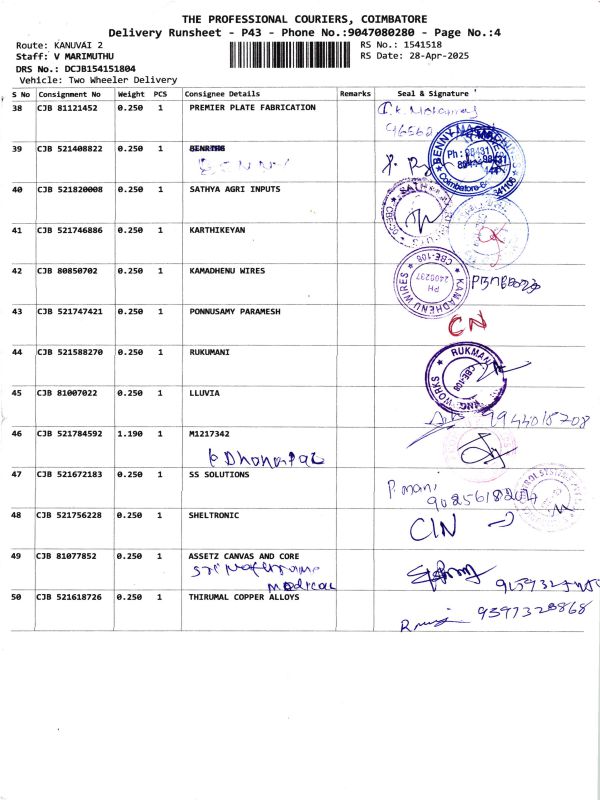 THE PROFESSIONAL COURIERS, COIMBATORE
Delivery Runsheet - P43 - Phone No.:9047080280 - Page No.:4
Route: KANUVAI 2 RS No.: 1541518
Staff: V MARIMUTHU RS Date: 28-Apr-2025
DRS No.: DCJB154151804
Vehicle: Two Wheeler Delivery
S No Consignment No Weight PCS Consignee Details Remarks Seal & Signature
38 CJB 81121452 0.250 1 PREMIER PLATE FABRICATION
39 CJB 521408822 0.250 1
BENNY
Ph : 98431
40 CJB 521820008 0.250 1 SATHYA AGRI INPUTS
41 CJB 521746886 0.250 1 KARTHIKEYAN
42 CJB 80850702 0.250 1 KAMADHENU WIRES
KAMADHENU WIRES CBE-108 PH 2400237
43 CJB 521747421 0.250 1 PONNUSAMY PARAMESH CN
44 CJB 521588270 0.250 1 RUKUMANI
RUKMANI WORKS CBE-108
45 CJB 81007022 0.250 1 LLUVIA
9944015708
46 CJB 521784592 1.190 1 M1217342
Dhanapal
47 CJB 521672183 0.250 1 SS SOLUTIONS P. mani
48 CJB 521756228 0.250 1 SHELTRONIC CIN
49 CJB 81077852 0.250 1 ASSETZ CANVAS AND CORE
Sri
Medical
50 CJB 521618726 0.250 1 THIRUMAL COPPER ALLOYS 9397323868